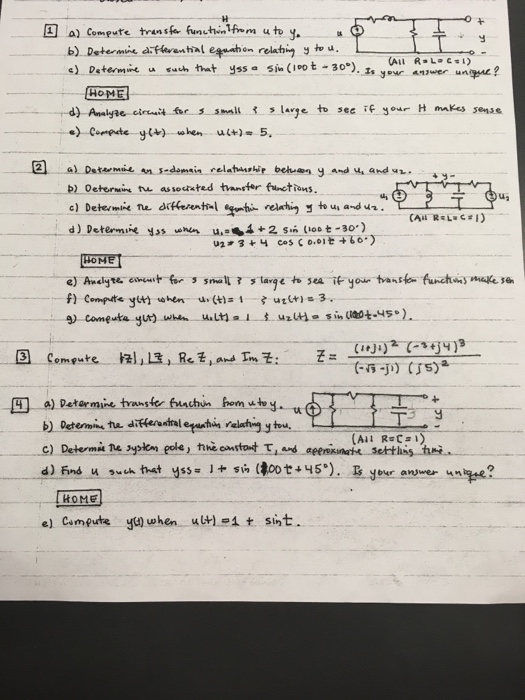 H
1 a) Compute transfer function from u to y. u + y -
b) Determine differential equation relating y to u. (All R=L=C=1)
c) Determine u such that yss = sin(100t - 30°). Is your answer unique?
HOME
d) Analyze circuit for s small & s large to see if your H makes sense
e) Compute y(t) when u(t) = 5.
2 a) Determine an s-domain relationship between y and u, and u2. + y -
b) Determine the associated transfer functions. u1 u2
c) Determine the differential equation relating y to u1 and u2. (All R=L=C=1)
d) Determine yss when u1 = 1 + 2 sin(100t - 30°)
u2 = 3 + 4 cos(0.01t + 60°)
HOME
e) Analyze circuit for s small & s large to see if your transfer functions make sen
f) Compute y(t) when u1(t) = 1 & u2(t) = 3.
g) Compute y(t) when u1(t) = 1 & u2(t) = sin(100t-45°).
3 Compute |Z|, ∠Z, Re Z, and Im Z: Z = (1+j1)² (-3+j4)³ / (-√3 - j1) (j5)²
4 a) Determine transfer function from u to y. u + y -
b) Determine the differential equation relating y to u.
(All R=C=1)
c) Determine the system pole, time constant τ, and approximate settling time.
d) Find u such that yss = 1 + sin(100t + 45°). Is your answer unique?
HOME
e) Compute y(t) when u(t) = 1 + sin t.